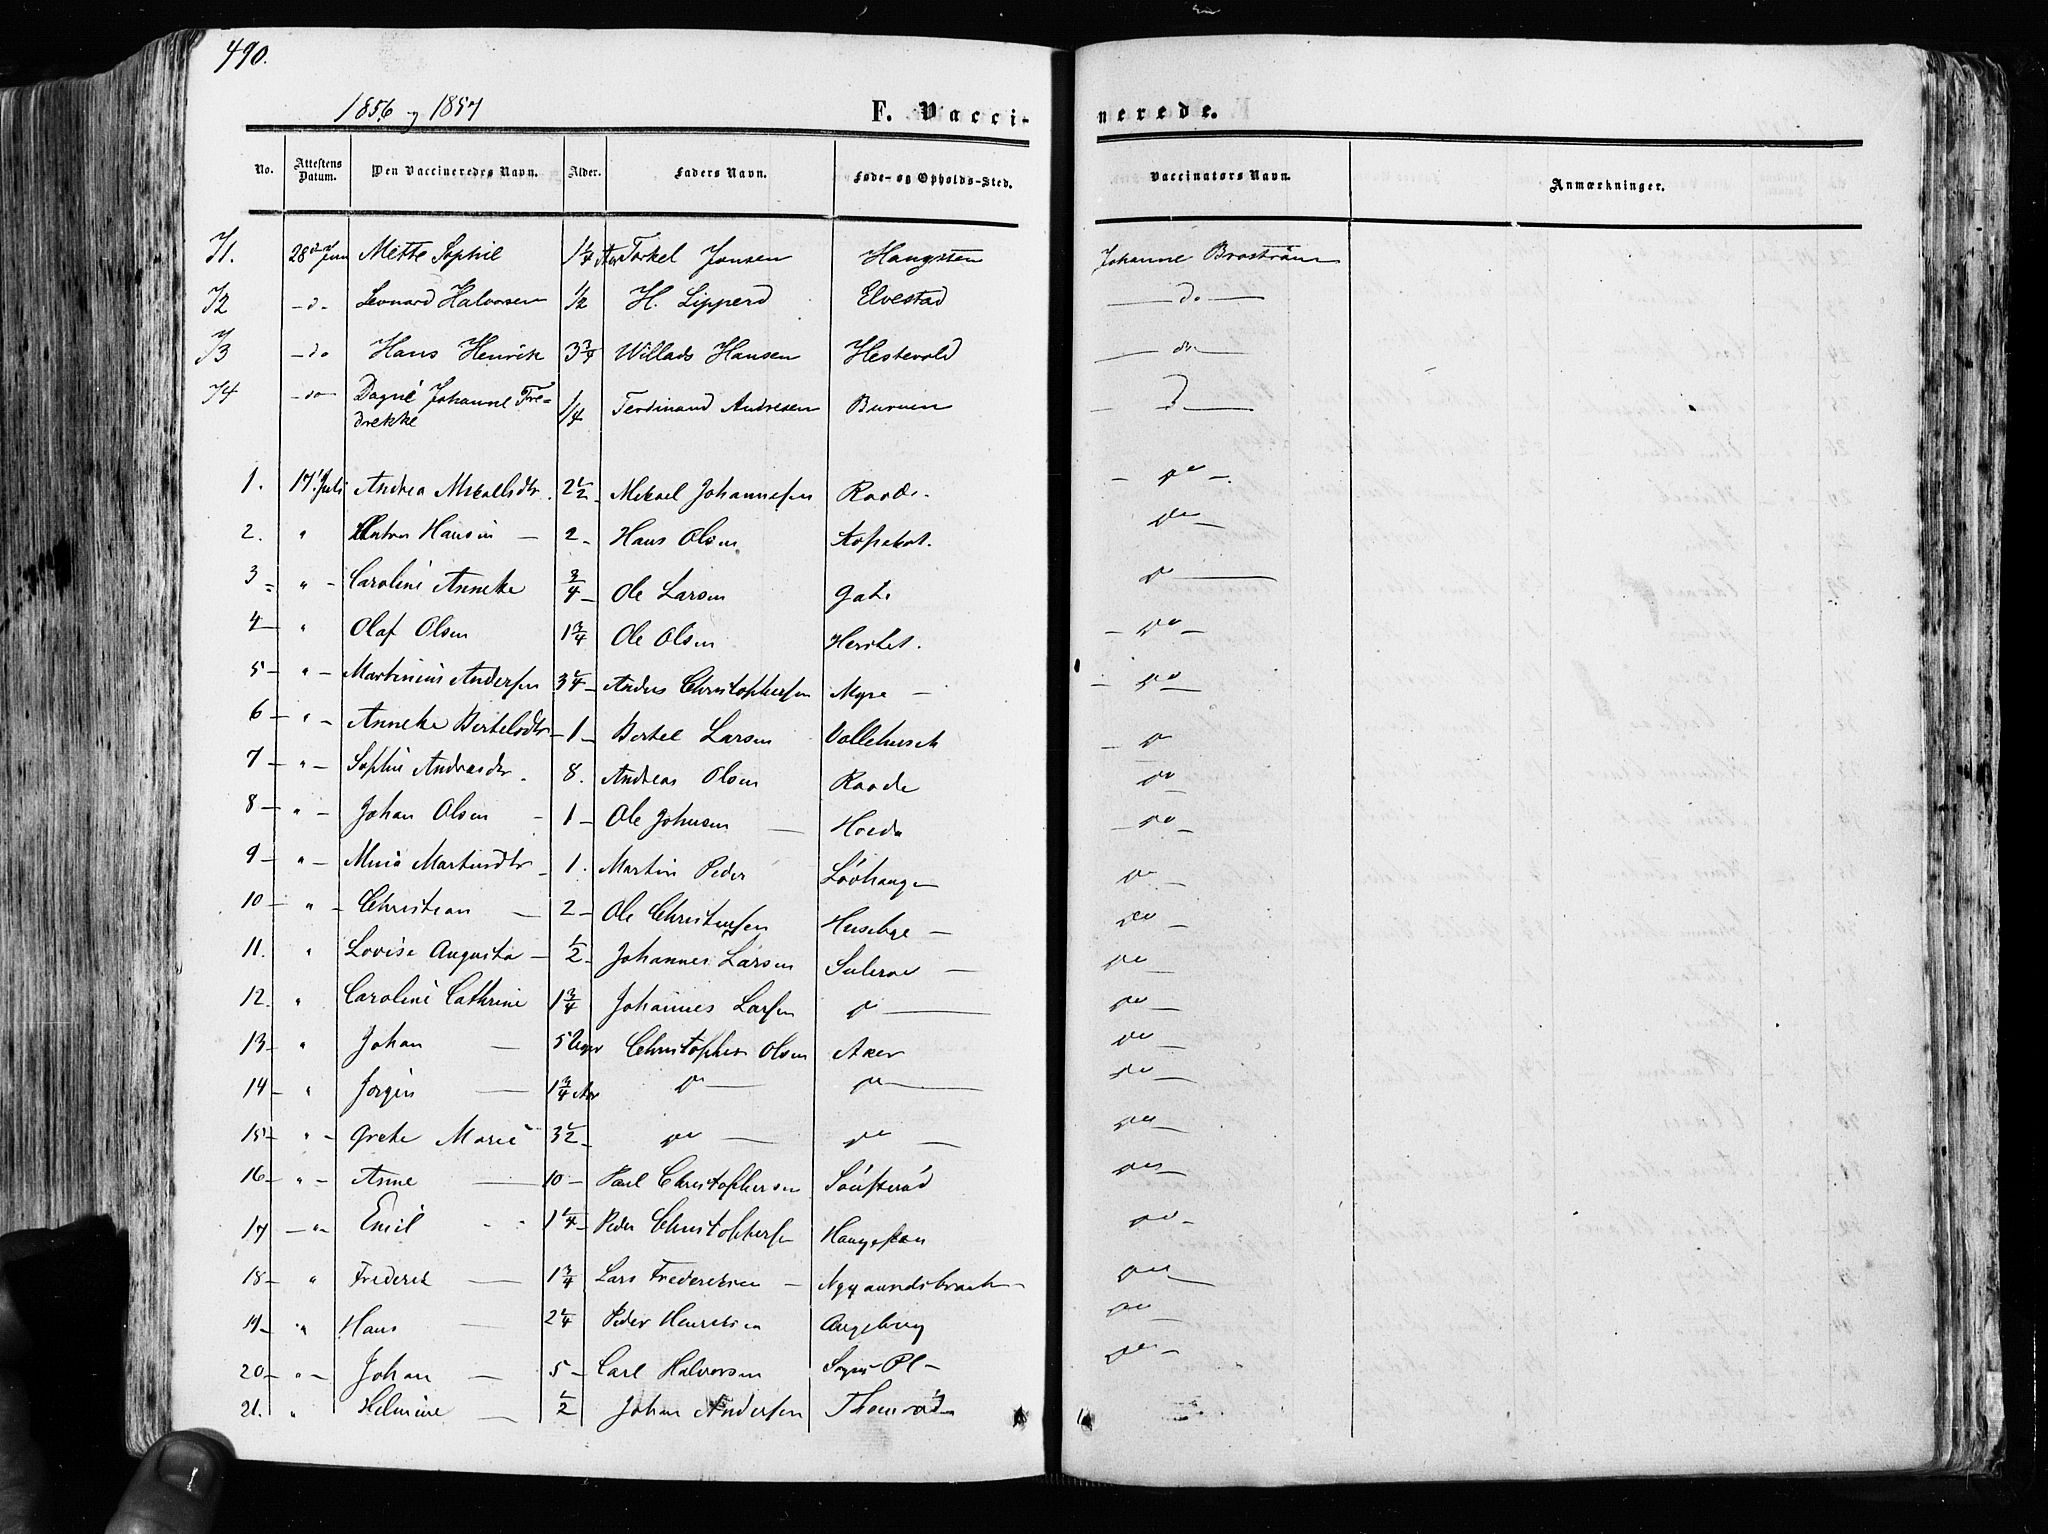 490.
1856 og 1857 F. Vaccinerede.
No. Attestens Datum. Den Vaccineredes Navn. Alder. Faders Navn. Føde- og Opholds-Sted. Vaccinators Navn. Anmærkninger.
71. 28de Juni Mette Sophie 1 1/4 Aar Torkel Jonsen Haugsten Johanne Broström
72 - do - Leonard Halvorsen 1/2 H. Lipperd Elvestad - do -
73 - do Hans Henrik 3 3/4 Willads Hansen Hestevold - do -
74 - do - Dagne Johanne Fre-
drekke 1/4 Ferdinand Andresen Buruen - d -
1. 17 Juli Andrea Mikaelsdtr. 2 1/2 Mikael Johannesen Raade. - do -
2. " Anton Hansen - 2 - Hans Olsen do -
3 - " - Caroline Anneke 3/4 - Ole Larsen Gate do -
4 - " Olaf Olsen 1 3/4 Ole Olsen - do -
5 - " - Martinius Andersen 3 1/4 - Anders Christophersen Myre - - do -
6 - " - Anneke Bertelsdtr - 1 - Bertel Larsen - do
7 - " - Sophie Andreasdtr. 8. Andreas Olsen Raade do -
8 - " - Johan Olsen - 1 - Ole Johnsen - - do -
9 - " - Martinsdtr - 1. Martin Peder do -
10 - " - Christian - 2 - Ole Christensen Husebye - do -
11. " Lovise Augusta - 1/2 - Johannes Larsen - do -
12. " Caroline Cathrine 1 3/4 Johannes Larsen do - do -
13 - " Johan - 5 Uger Christopher Olsen Aker do -
14 - " Jørgen - 1 3/4 Aar do - do - do -
15 - " - Grethe Marie 3 1/2 - do - do - do -
16 - " - Anne - 10 - Paul Christophersen do -
17 - " - Emil 1 1/4 - Peder Christophersen Haugsten do -
18 - " Frederik - 1 3/4 Lars Frederiksen - do -
19 - " Hans - 2 1/4 Peder Henriksen Augeberg do -
20 - " - Johan - 5 - Carl Halvorsen Pl - do -
21. " Helmine - 1/2 Johan Andersen